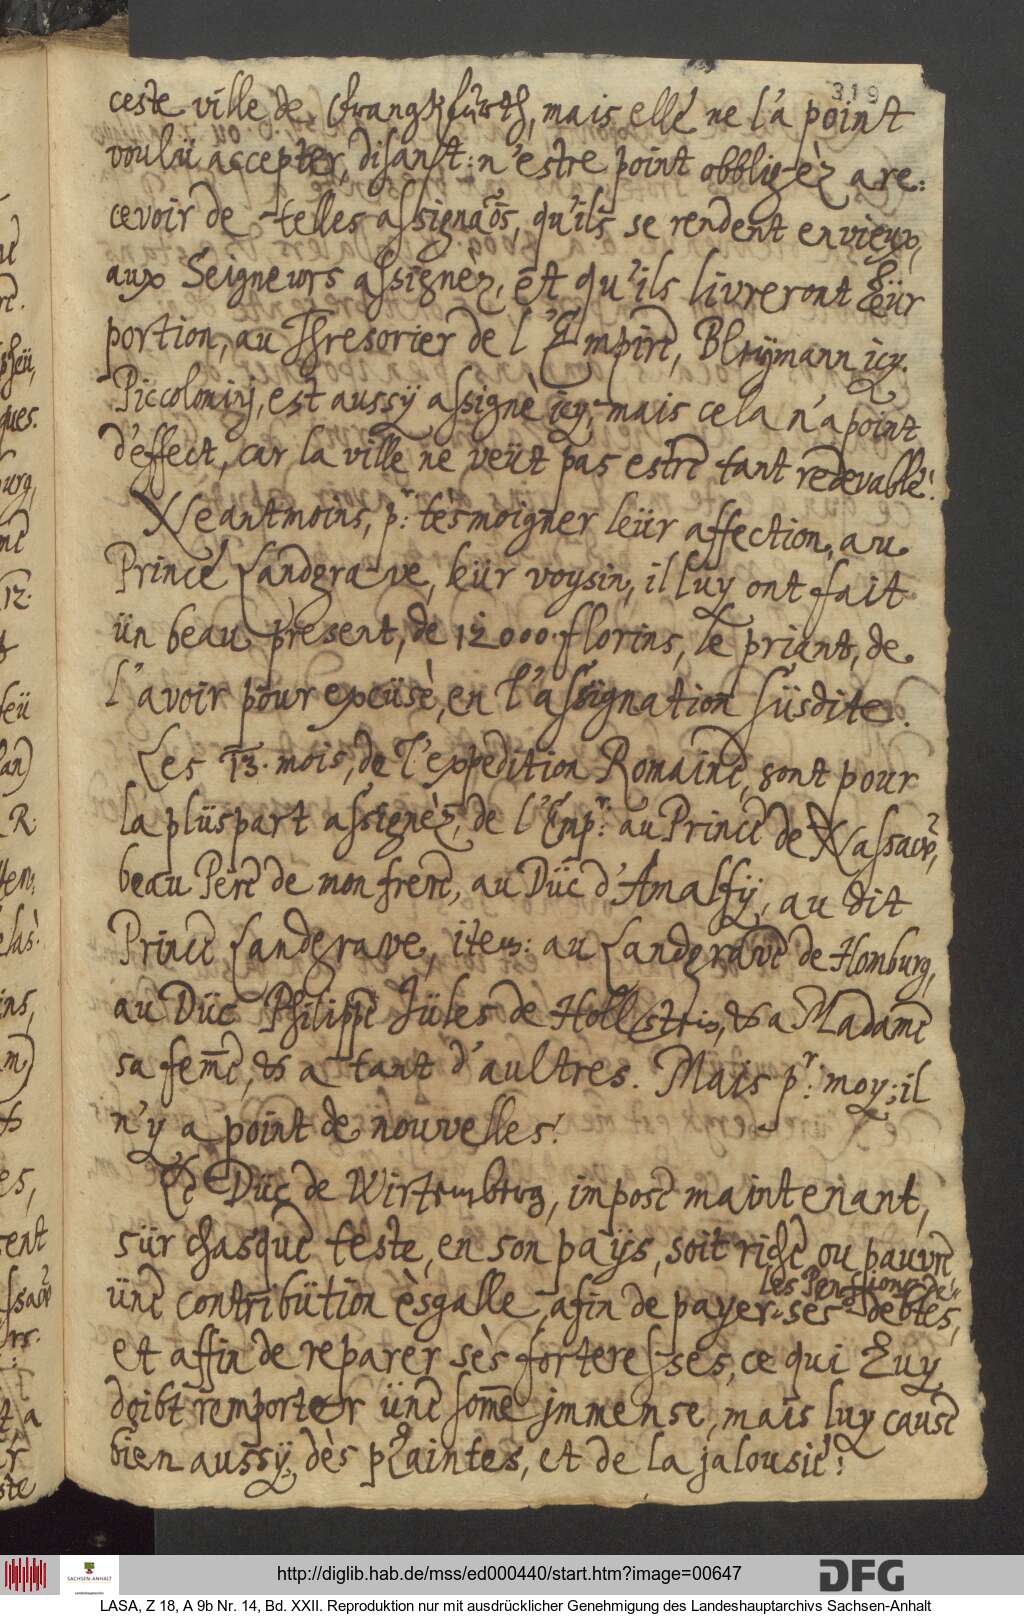 319
ceste ville de Franghfurth, mais elle ne l'a point
voulü accepter, disant: n'estre point obbligèz a re:
cevoir de telles assignaõs, qu'ils se rendent envieux,
aux Seigneurs assignèz, et qu'ils livreront leür
portion, au Thresorier de l'Empire, Bleymann icy.
Piccolominj, est aussÿ assignè icy, mais cela n'a point
d'effect, car la ville ne veüt pas estre tant redevable!
Neantmoins, pr: tesmoigner leür affection, au
Prince Landgrave, leür voysin, il luy ont fait
ün beau present, de 12000 florins, le priant, de
l'avoir pour excüsè, en l'assignation süsdite.
Les 13. mois, de l'expedition Romaine, sont pour
la plüspart assignèz, de l'Empr: au Prince de Nassaw,
beau Pere de mon frere, au Düc d'Amalfÿ, au dit
Prince Landgrave, item: au Landgrave de Homburg,
au Düc Philippe Jüles de Hollstein, & a Madame
sa fem̃e, & a tant d'aultres. Mais pr: moy; il
n'y a point de nouvelles!
Le Düc de Wirtemberg, impose maintenant,
sür chasque teste, en son païjs, soit riche ou pauvre
üne contribütion èsgalle, afin de payer ses debtes,
les Pensions de
et affin de reparer sès forteresses, ce qui luy
doibt remporter üne som̃e immense, mais luy cause
bien aussÿ, dès plaintes, et de la jalousie!
http://diglib.hab.de/mss/ed000440/start.htm?image=00647
SACHSEN-ANHALT
DFG
LASA, Z 18, A 9b Nr. 14, Bd. XXII. Reproduktion nur mit ausdrücklicher Genehmigung des Landeshauptarchivs Sachsen-Anhalt